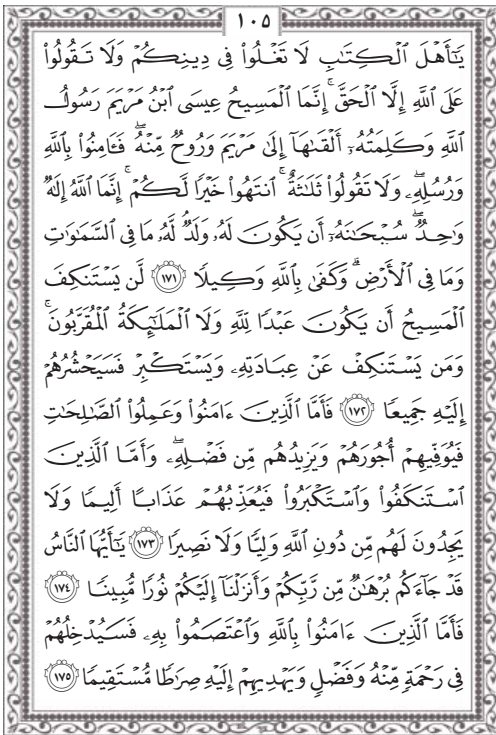 ١٠٥
يَـٰٓأَهْلَ ٱلْكِتَـٰبِ لَا تَغْلُوا۟ فِى دِينِكُمْ وَلَا تَقُولُوا۟
عَلَى ٱللَّهِ إِلَّا ٱلْحَقَّ ۚ إِنَّمَا ٱلْمَسِيحُ عِيسَى ٱبْنُ مَرْيَمَ رَسُولُ
ٱللَّهِ وَكَلِمَتُهُۥٓ أَلْقَىٰهَآ إِلَىٰ مَرْيَمَ وَرُوحٌ مِّنْهُ ۖ فَـَٔامِنُوا۟ بِٱللَّهِ
وَرُسُلِهِۦ ۖ وَلَا تَقُولُوا۟ ثَلَـٰثَةٌ ۚ ٱنتَهُوا۟ خَيْرًا لَّكُمْ ۚ إِنَّمَا ٱللَّهُ إِلَـٰهٌ
وَٰحِدٌ ۖ سُبْحَـٰنَهُۥٓ أَن يَكُونَ لَهُۥ وَلَدٌ ۘ لَّهُۥ مَا فِى ٱلسَّمَـٰوَٰتِ
وَمَا فِى ٱلْأَرْضِ ۗ وَكَفَىٰ بِٱللَّهِ وَكِيلًا ١٧١ لَّن يَسْتَنكِفَ
ٱلْمَسِيحُ أَن يَكُونَ عَبْدًا لِّلَّهِ وَلَا ٱلْمَلَـٰٓئِكَةُ ٱلْمُقَرَّبُونَ ۚ
وَمَن يَسْتَنكِفْ عَنْ عِبَادَتِهِۦ وَيَسْتَكْبِرْ فَسَيَحْشُرُهُمْ
إِلَيْهِ جَمِيعًا ١٧٢ فَأَمَّا ٱلَّذِينَ ءَامَنُوا۟ وَعَمِلُوا۟ ٱلصَّـٰلِحَـٰتِ
فَيُوَفِّيهِمْ أُجُورَهُمْ وَيَزِيدُهُم مِّن فَضْلِهِۦ ۖ وَأَمَّا ٱلَّذِينَ
ٱسْتَنكَفُوا۟ وَٱسْتَكْبَرُوا۟ فَيُعَذِّبُهُمْ عَذَابًا أَلِيمًا وَلَا
يَجِدُونَ لَهُم مِّن دُونِ ٱللَّهِ وَلِيًّا وَلَا نَصِيرًا ١٧٣ يَـٰٓأَيُّهَا ٱلنَّاسُ
قَدْ جَآءَكُم بُرْهَـٰنٌ مِّن رَّبِّكُمْ وَأَنزَلْنَآ إِلَيْكُمْ نُورًا مُّبِينًا ١٧٤
فَأَمَّا ٱلَّذِينَ ءَامَنُوا۟ بِٱللَّهِ وَٱعْتَصَمُوا۟ بِهِۦ فَسَيُدْخِلُهُمْ
فِى رَحْمَةٍ مِّنْهُ وَفَضْلٍ وَيَهْدِيهِمْ إِلَيْهِ صِرَٰطًا مُّسْتَقِيمًا ١٧٥